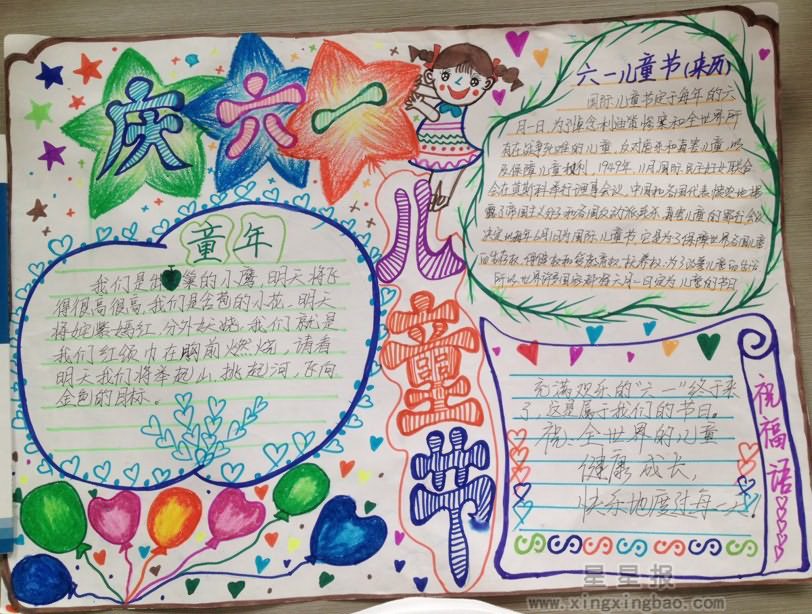 庆六一
儿童节
童年
我们是出巢的小鹰,明天将飞
得很高很高,我们是含苞的小花,明天
将姹紫嫣红,分外妖娆,我们就是
我们红领巾在胸前燃烧,请看
明天我们将举起山,挑起河,飞向
金色的目标。
六一儿童节(来历)
国际儿童节定于每年的六
月一日。为了悼念利迪策惨案和全世界所
有在战争死难的儿童,反对虐杀和毒害儿童,以
及保障儿童权利,1949年,11月国际民主妇女联合
会在莫斯科举行理事会议,中国和各国代表愤怒地揭
露了帝国主义分子和各国反动派杀害、毒害儿童的罪行会议
决定以每年6月1日为国际儿童节,它是为了保障世界各国儿童
的生存权、保健权和受教育权、抚养权,为了改善儿童的生活
所以世界许多国家都将六月一日定为儿童的节日
祝福语
充满欢乐的“六一”终于来
了,这是属于我们的节日。
祝:全世界的儿童
健康成长,
快乐地度过每一天!
星星报
www.xingxingbao.com